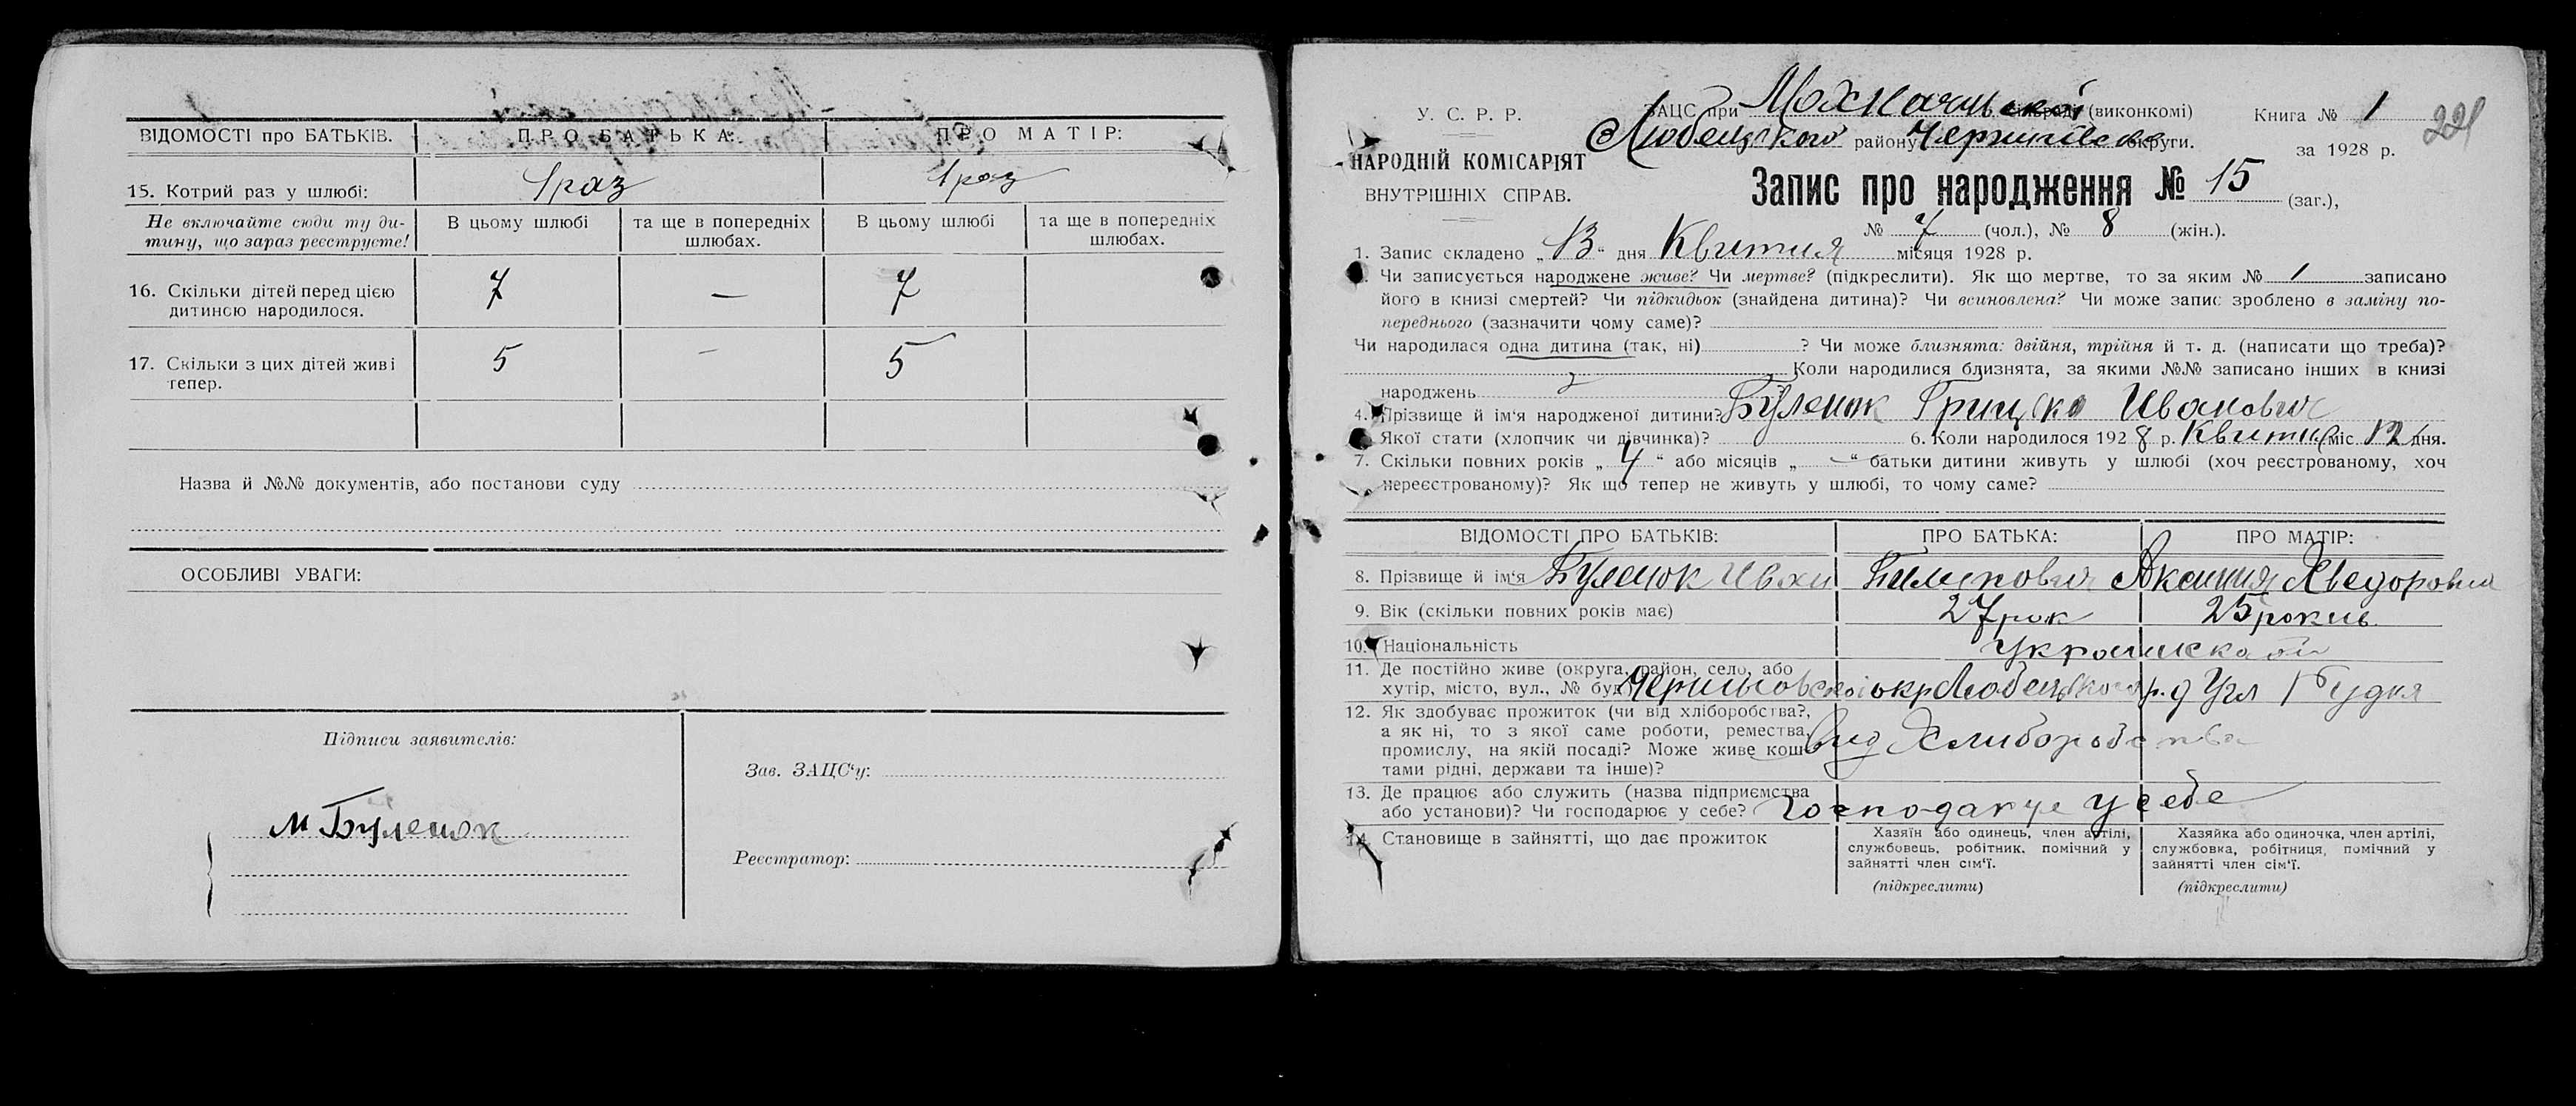 ВІДОМОСТІ про БАТЬКІВ. ПРО БАТЬКА: ПРО МАТІР:
15. Котрий раз у шлюбі: 1 раз 1 раз
Не включайте сюди ту ди-
тину, що зараз реєструєте!
В цьому шлюбі та ще в попередніх шлюбах. В цьому шлюбі та ще в попередніх шлюбах.
16. Скільки дітей перед цією 7 — 7
дитиною народилося.
17. Скільки з цих дітей живі 5 — 5
тепер.
Назва й №№ документів, або постанови суду
ОСОБЛИВІ УВАГИ:
Підписи заявителів:
Зав. ЗАЦС‘у:
М Буленок
Реєстратор:
У. С. Р. Р.
НАРОДНІЙ КОМІСАРІЯТ
ВНУТРІШНІХ СПРАВ.
ЗАЦС при (виконкомі) Книга № 1
221
Любецького району округи. за 1928 р.
Запис про народження № 15 (заг.),
№ 7 (чол.), № 8 (жін.).
1. Запис складено „13“ дня Квитня місяця 1928 р.
Чи записується народжене живе? Чи мертве? (підкреслити). Як що мертве, то за яким № 1 записано
його в книзі смертей? Чи підкидьок (знайдена дитина)? Чи всиновлена? Чи може запис зроблено в заміну по-
переднього (зазначити чому саме)?
Чи народилася одна дитина (так, ні) ? Чи може близнята: двійня, трійня й т. д. (написати що треба)?
Коли народилися близнята, за якими №№ записано інших в книзі
народжень
4. Прізвище й ім‘я народженої дитини? Буленок Грицко Иванович
Якої стати (хлопчик чи дівчинка)? 6. Коли народилося 1928 р. міс. 12 дня.
7. Скільки повних років „4“ або місяців „—“ батьки дитини живуть у шлюбі (хоч реєстрованому, хоч
нереєстрованому)? Як що тепер не живуть у шлюбі, то чому саме?
ВІДОМОСТІ ПРО БАТЬКІВ: ПРО БАТЬКА: ПРО МАТІР:
8. Прізвище й ім‘я Буленок Иван
9. Вік (скільки повних років має) 27 рок 25 рокив
10. Національність
11. Де постійно живе (округа, район, село, або
хутір, місто, вул., № буд. окр Любецького
12. Як здобуває прожиток (чи від хліборобства?,
а як ні, то з якої саме роботи, ремества,
промислу, на якій посаді? Може живе кош-
тами рідні, держави та інше)?
вид Хлиборобства
13. Де працює або служить (назва підприємства
або установи)? Чи господарює у себе? у себе
14. Становище в зайнятті, що дає прожиток
Хазяїн або одинець, член артілі,
службовець, робітник, помічний у
зайнятті член сім‘ї.
(підкреслити)
Хазяйка або одиночка, член артілі,
службовка, робітниця, помічний у
зайнятті член сім‘ї.
(підкреслити)